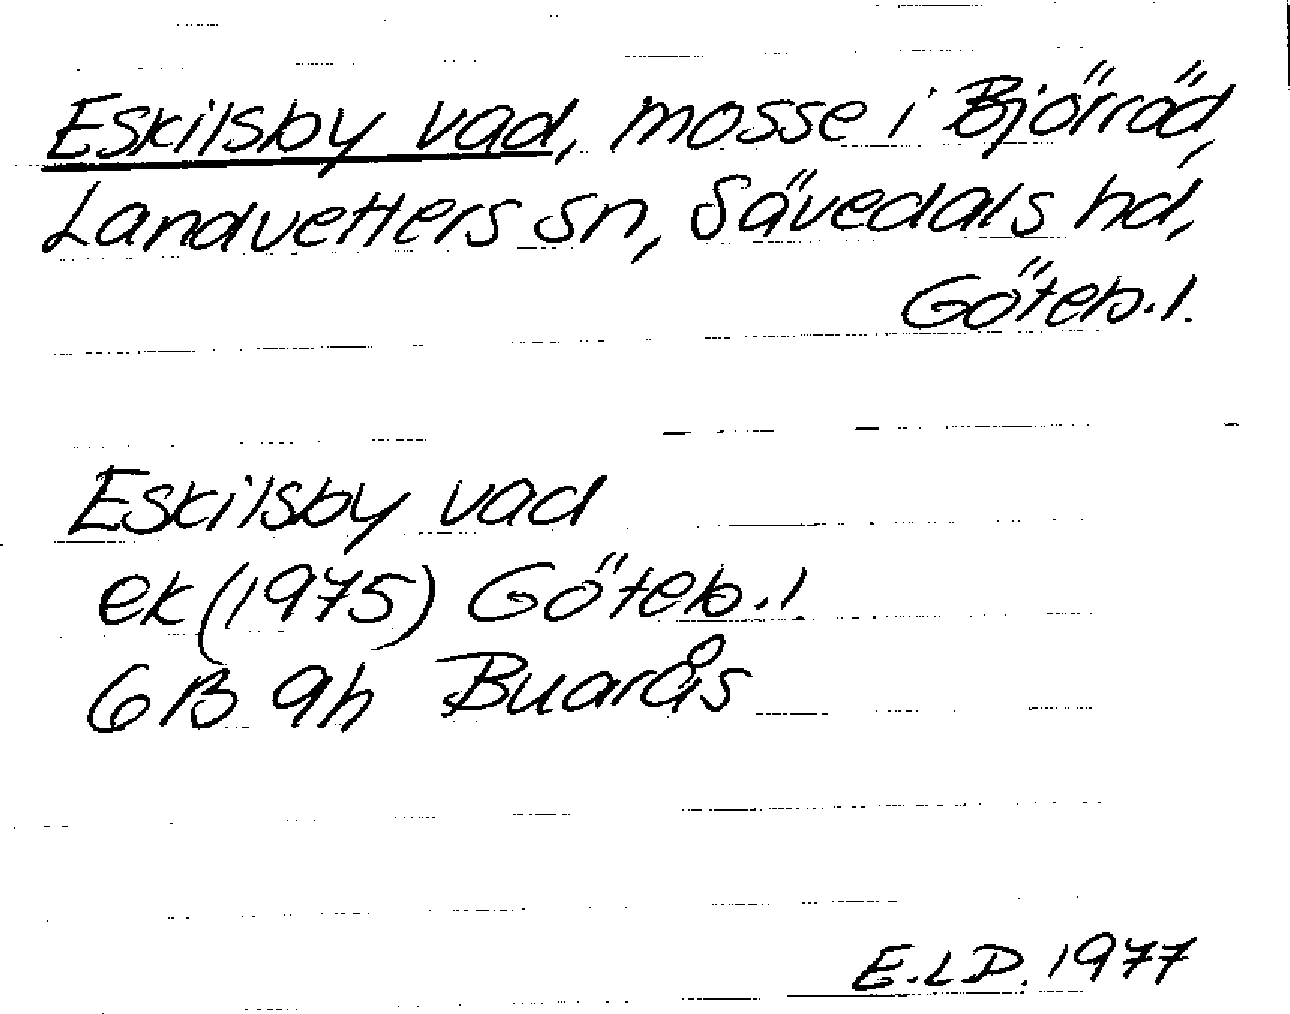 Eskilsby vad, mosse i Björröd,
Landvetters sn, Sävedals hd,
Göteb.l.
Eskilsby vad
ek (1975) Göteb.l
6B 9h Buarås
E.LD. 1977